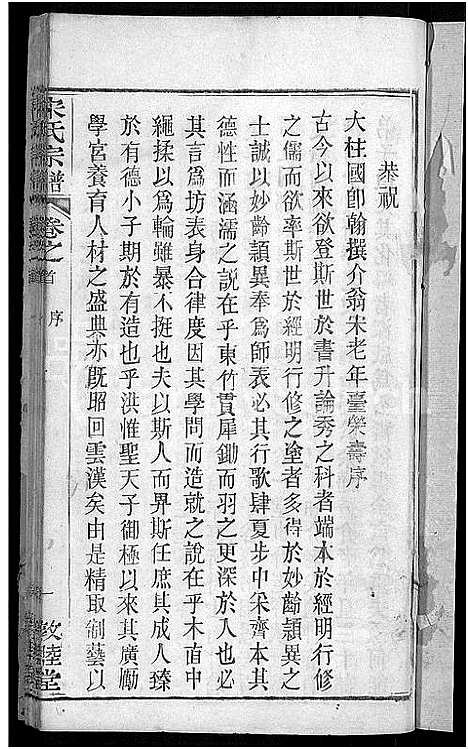 恭祝
大柱國卽翰撰介翁宋老年臺榮壽序
古今以來欲登斯世於書升論秀之科者端本於經明行修
之儒而欲率斯世於經明行修之塗者多得於妙齡頴異之
士誠以妙齡頴異奉爲師表必其行歌肆夏步中采齊本其
德性而涵濡之說在乎東竹貫犀鋤而羽之更深於入也必
其言爲坊表身合律度因其學問而造就之說在乎木直中
繩揉以爲輪雖暴不挺也夫以斯人而畀斯任庶其成人臻
於有德小子期於有造也乎洪惟聖天子御極以來其廣勵
學宮養育人材之盛典亦旣昭回雲漢矣由是精取制藝以
宋氏宗譜
卷之首
序
一
敦睦堂